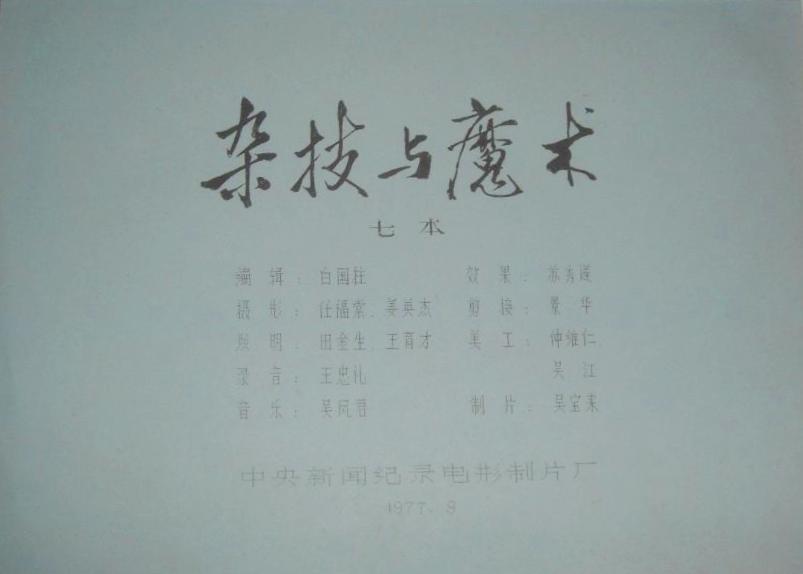 杂技与魔术
七本
编辑：白国柱 效果：苏秀
摄影：任福棠、姜英杰 剪接：景华
照明：田金生、王育才 美工：仲维仁、
录音：王忠礼 吴江
音乐：吴风君 制片：吴宝来
中央新闻纪录电影制片厂
1977.8